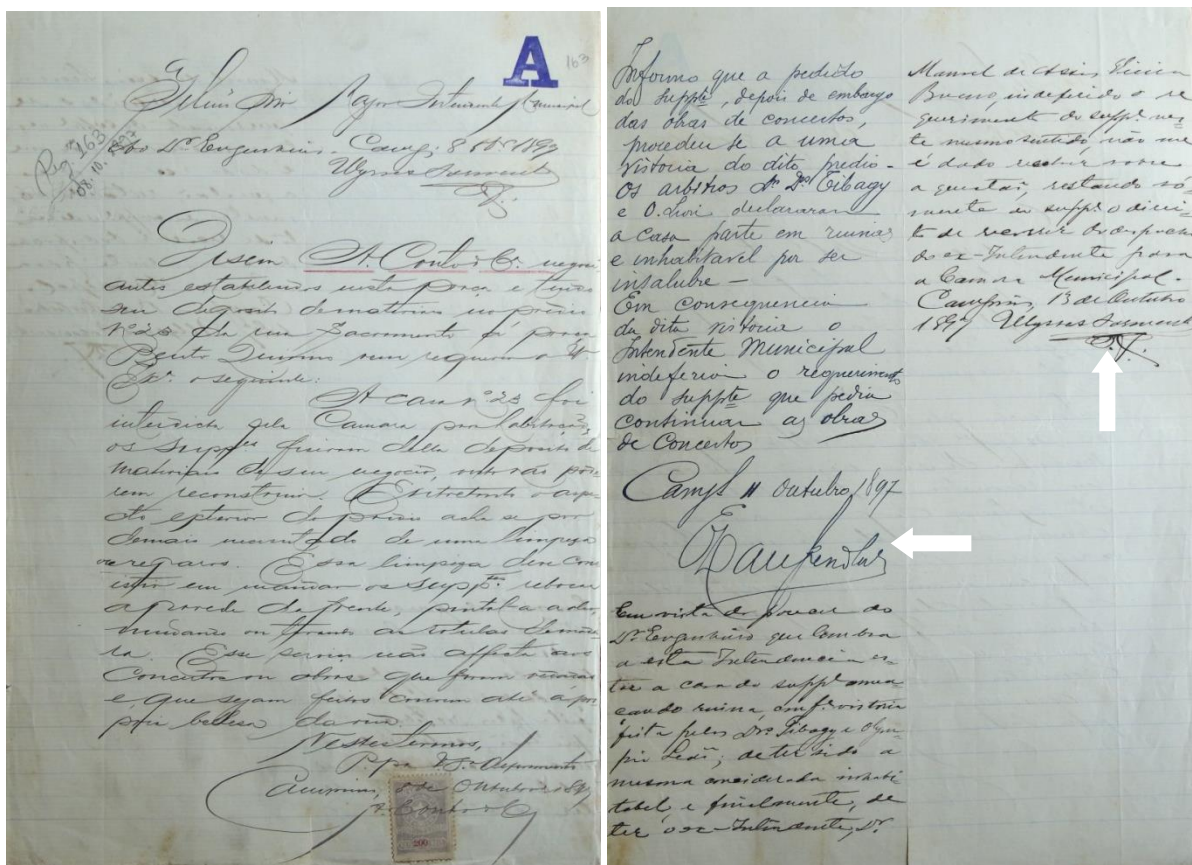 A
163
Major Intendente Municipal
Req 163
08.10.1897
Ao Dr. Engenheiro. Camp. 8 1897
Ulysses Sarmento
Dizem A. Couto & Ca. negoci
antes estabelecidos nesta praça e
seu deposito de materiaes no predio
No 23 da rua Sacramento
Bento Quirino vem requerer a V.
Exa. o seguinte:
A casa no 23 foi
interdicta pela Camara por
os suppes fizeram della deposito de
materiaes de seu negocio,
rem reconstruir. Entretanto o aspe-
cto exterior do predio acha-se por
demais de uma limpeza
ou reparos. Essa limpeza
os suppes rebocar
a parede da frente, pintal-a
mudando as rotulas
ra. Esse serviço não affecta aos
Concertos ou obras que foram
e, que sejam feitos convem até á pro-
pria belleza da rua.
Nestes termos,
P. Deferimento
Campinas, 8 de Outubro de 1897
A. Couto & Ca
200
Informo que a pedido
do suppte, depois de embargo
das obras de concertos,
procedeu se a uma
vistoria do dito predio -
Os arbitros Drs Tibagy
e O. declararam
a casa parte em ruinas
e inhabitavel por ser
insalubre -
Em consequencia
da dita vistoria o
Intendente Municipal
indeferio o requerimento
do suppte que pedia
continuar as obras
de Concertos
Camps 11 Outubro 1897
Em vista do parecer do
Dr. Engenheiro que lembra
a esta Intendencia es-
tar a casa do suppe amea-
çando ruina, conf. vistoria
feita pelos Drs. Tibagy e Olym-
pio; de ter sido a
mesma considerada inhabi-
tabel, e finalmente, de
ter o ex-Intendente, Dr.
Manoel de Assis Vieira
Bueno, indeferido o re
querimento do suppe nes-
te mesmo sentido não me
é dado resolver sobre
a questão, restando só
mente ao suppe o direi-
to de recorrer do despacho
do ex-Intendente para
a Camara Municipal -
Campinas, 13 de Outubro
1897 Ulysses Sarmento